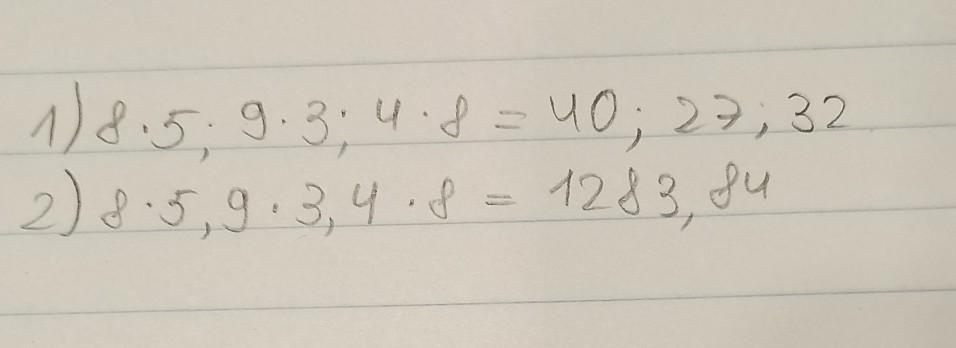 1) 8·5; 9·3; 4·8 = 40; 27; 32
2) 8·5,9·3,4·8 = 1283,84